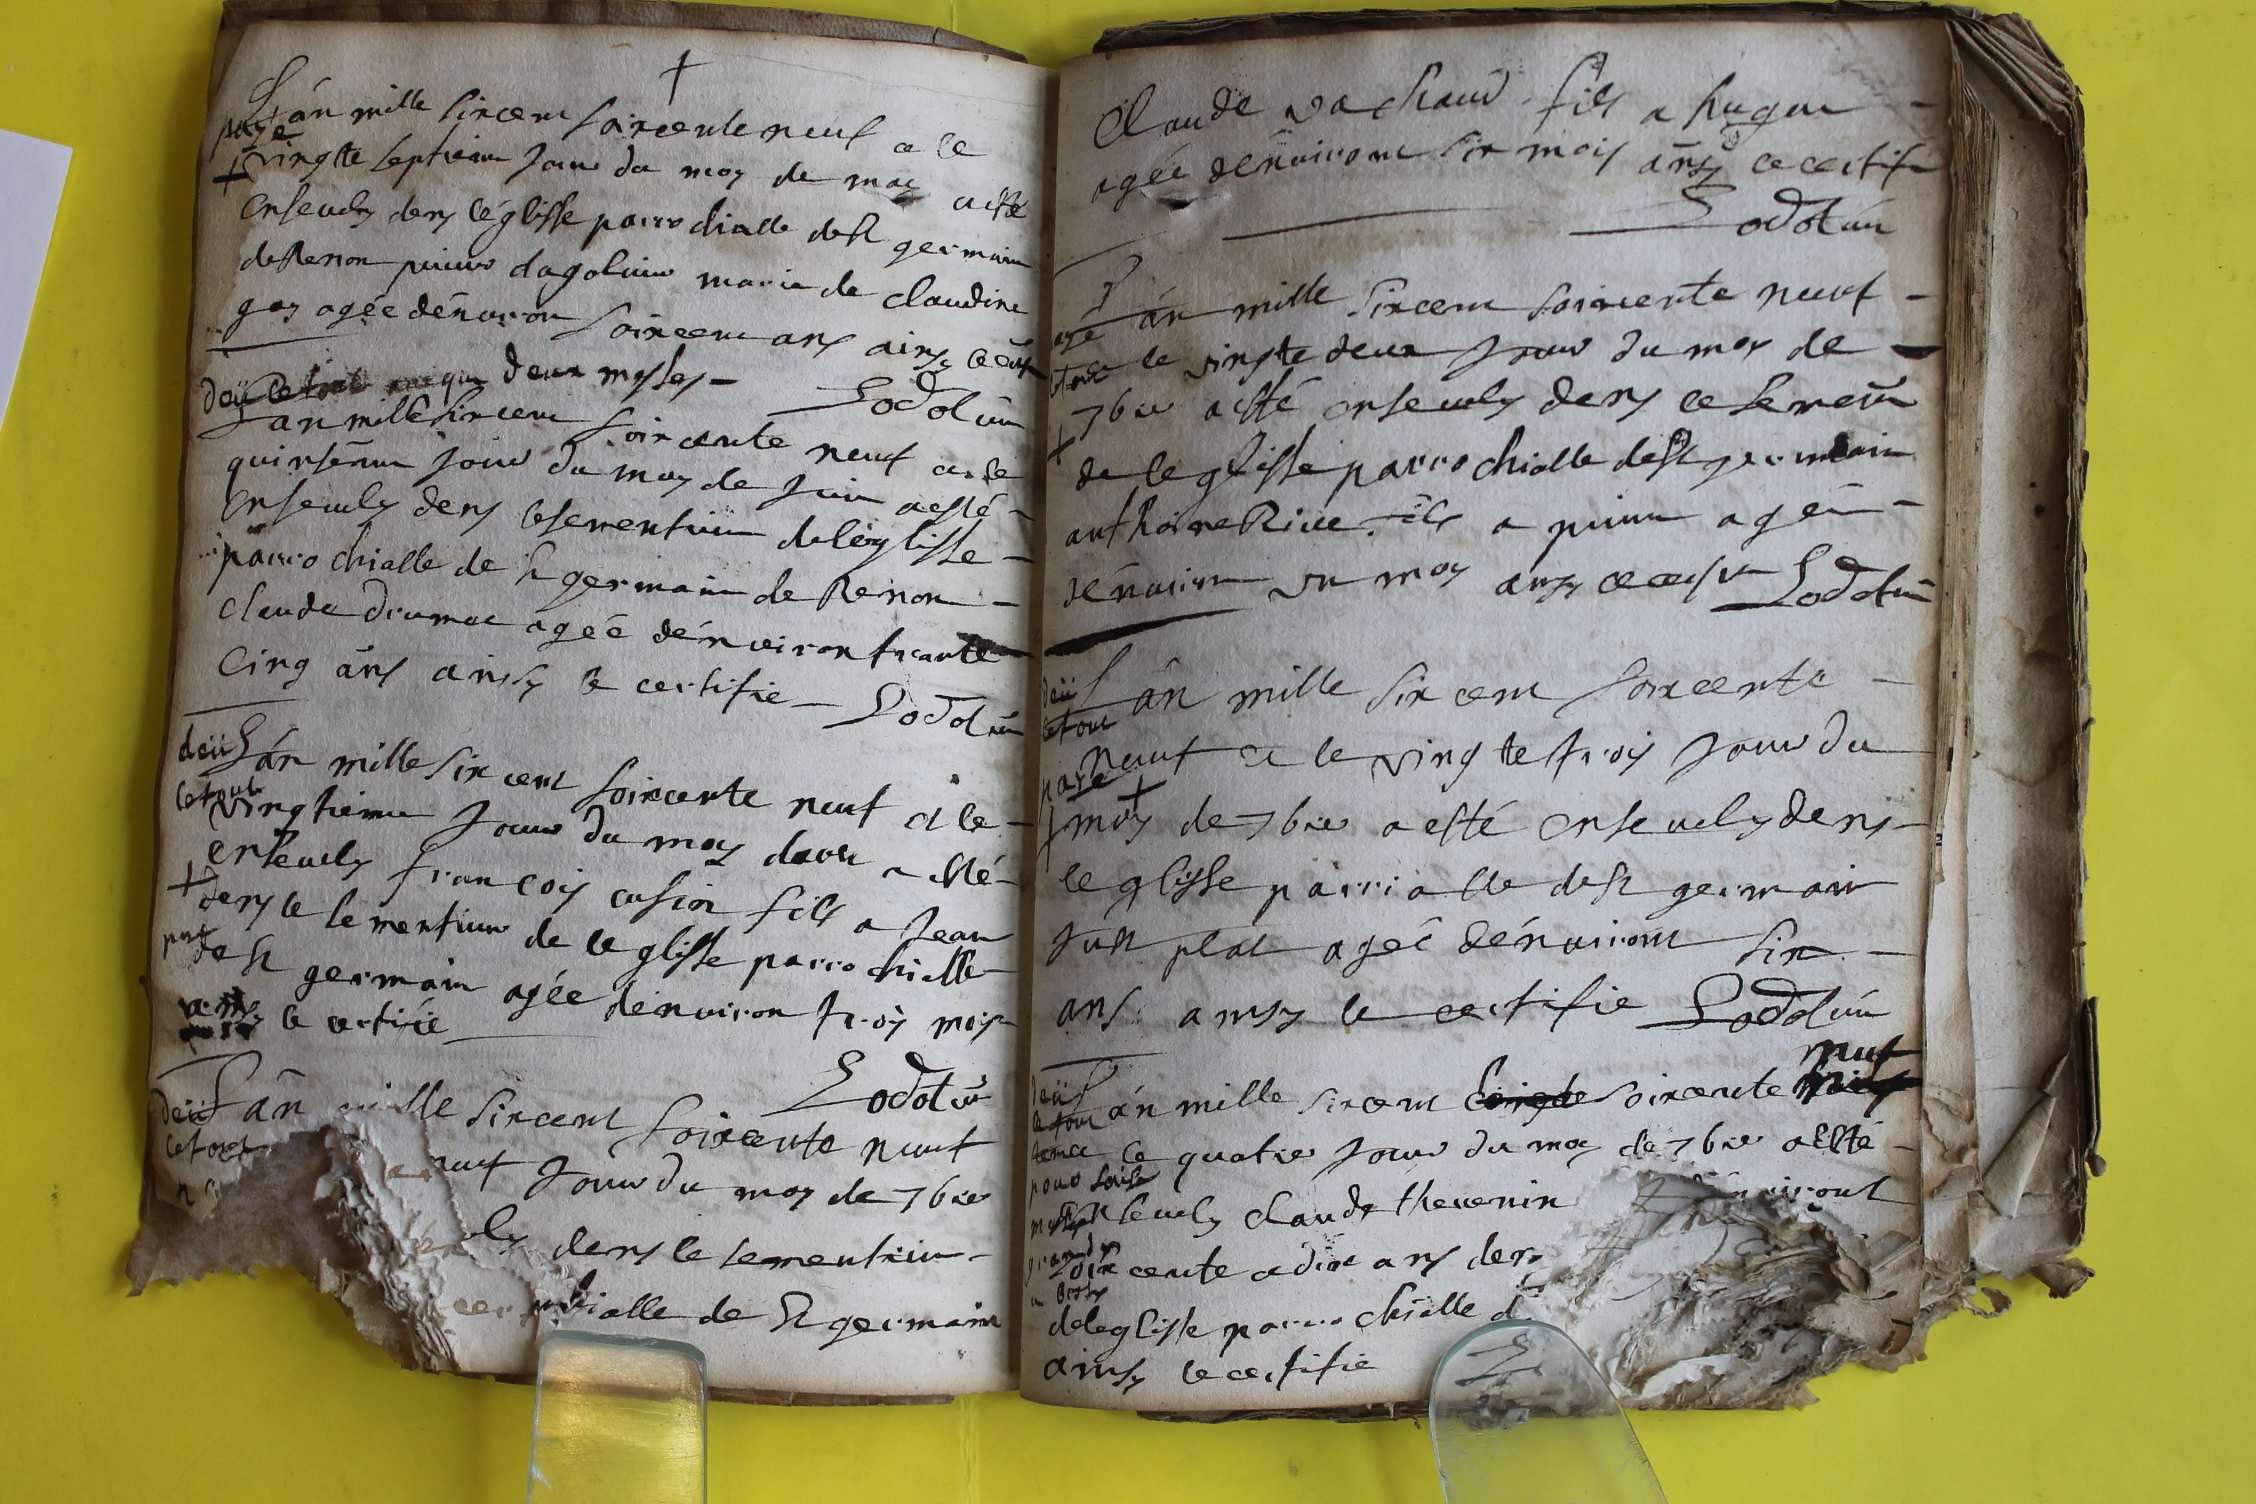 †
L'an mille sixcent soixcente neuf a le
paye
+ vingtte septieme jour du moy de may a esté
ensevely dens l'églisse parrochialle de st germain
de Renon pierre dagolieur marie de claudine
goy agée dénviron soixcent ans ainsy le certifie
deü le tout deux messes - Lodotün
Lan mille sixcent soixcente neuf a le
quinsénme jour du moy de juin a esté -
ensevely dens le sementiere de léglisse -
parrochialle de st germain de Renon -
claude drumac agée dénviron trante
cinq ans ainsy le certifie - Lodotün
deü Lán mille sixcent soixcente neuf a le -
le tout
vingtieme jour du moy daou a esté -
ensevely françois cusin fils a Jean
+ dens le sementiere de leglisse parrochialle
de st germain agée dénviron trois mois
ainsy le certifie
Lodotün
deü Lan mille sixcent soixcente neuf
le tout neuf jour du moy de 7bre
ly dens le sementiere -
chialle de st germain
Claude vachaud fils a hugue -
agée dénviront six mois ansy le certifie
Lodotün
Lan mille sixcent soixcente neuf -
a le vingtte deux jour du moy de -
7bre a esté ensevely dens le
+ de leglisse parrochialle de st germain
anthoine Rive fils a pierre agée -
dénviron un moy ansy le certifie Lodotün
deü Lan mille sixcent soixcente -
le tout
neuf a le vingtte trois jour du
paye
+ moy de 7bre a esté ensevely dens -
leglisse parrialle de st germain
just plat agée dénviront six -
ans ainsy le certifie Lodotün
neuf
deü Lan mille sixcent soixcente
le tout
le quatre jour du moy de 7bre a esté -
pour
ensevely claude thevenin dénviront
grand
soixcente a dix ans dens
de leglisse parrochialle d
ainsy le certifie